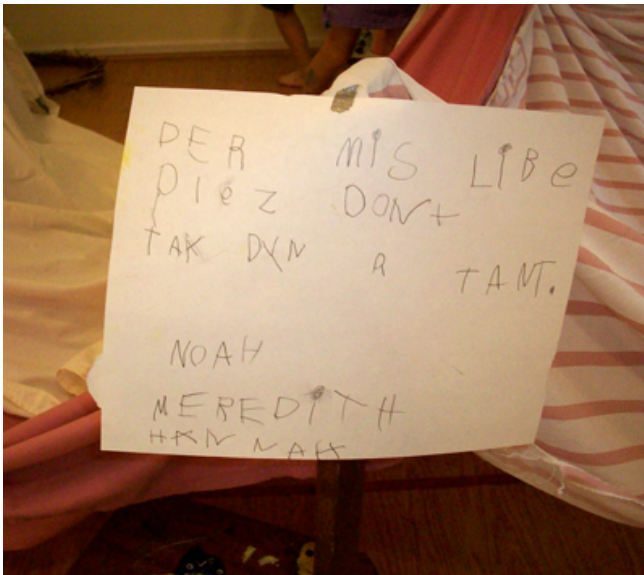 DER MiS LiBe
PleZ DONt
TAK DYN R TANT.
NOAH
MEREDiTH
HANNAH